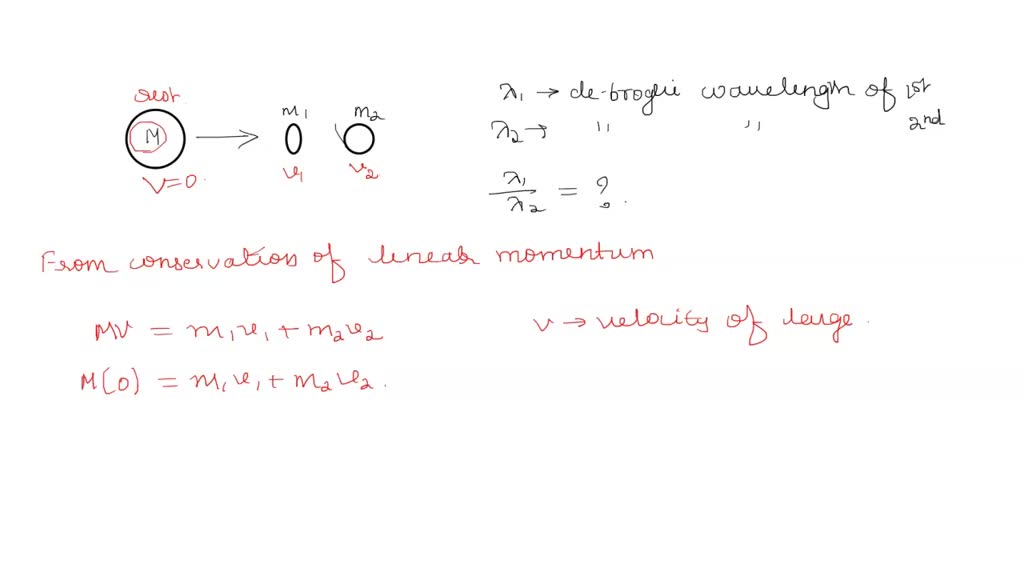 rest
M
V=0
m1
m2
v1
v2
λ1 → de-broglie wavelength of 1st
λ2 → " " 2nd
λ1/λ2 = ?
From conservation of linear momentum
MV = m1v1 + m2v2
v → velocity of large.
M(0) = m1v1 + m2v2.